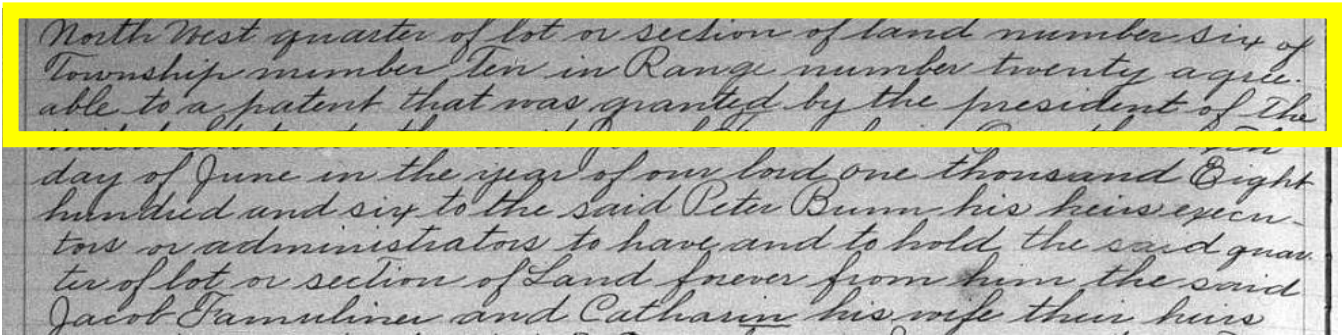 North West quarter of lot or section of land number six of
Township number Ten in Range number twenty agree-
able to a patent that was granted by the president of the
day of June in the year of our lord one thousand Eight
hundred and six to the said Peter Bunn his heirs execu-
tors or administrators to have and to hold the said quar
ter of lot or section of Land forever from him the said
Jacob Famuliner and Catharin his wife their heirs